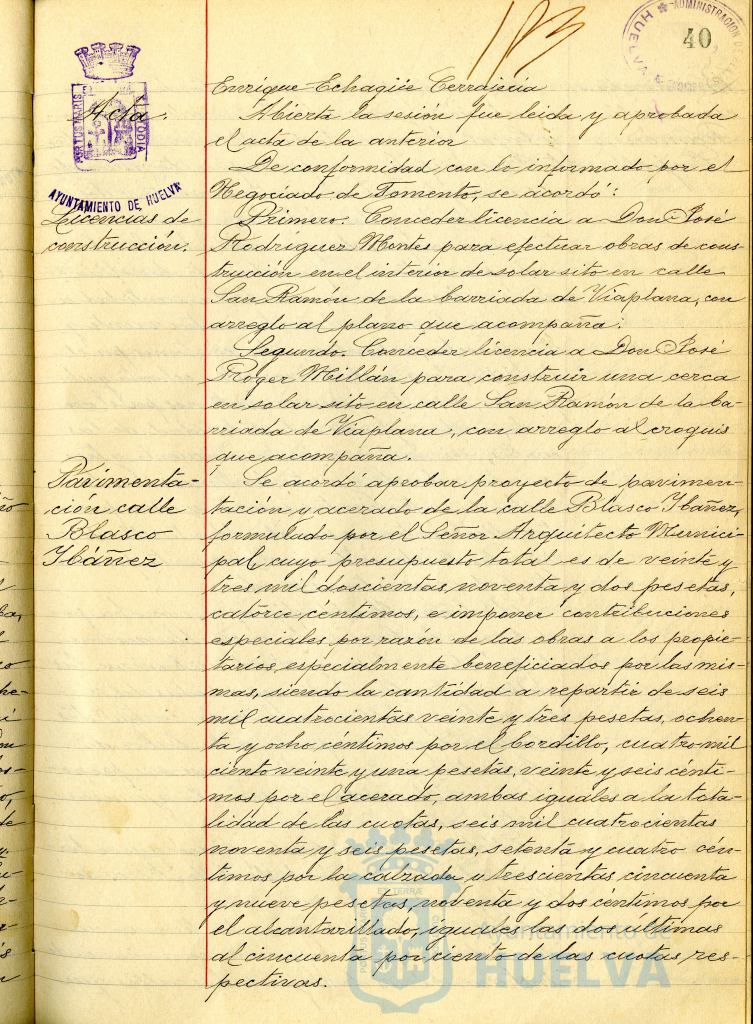 40
HUELVA
ADMINISTRACION DE
Enrique Echagüe Cerrajería
Acta.
Abierta la sesión fue leida y aprobada
el acta de la anterior
De conformidad con lo informado por el
AYUNTAMIENTO DE HUELVA
Negociado de Fomento, se acordó:
Licencias de
construcción.
Primero. Conceder licencia a Don José
Rodríguez Montes para efectuar obras de cons-
trucción en el interior de solar sito en calle
San Ramón de la barriada de Viaplana, con
arreglo al plano que acompaña.
Segundo. Conceder licencia a Don José
Roger Millán para construir una cerca
en solar sito en calle San Ramón de la ba-
rriada de Viaplana, con arreglo al croquis
que acompaña.
Pavimenta-
ción calle
Blasco
Ibáñez
Se acordó aprobar proyecto de pavimen-
tación y acerado de la calle Blasco Ibañez,
formulado por el Señor Arquitecto Munici-
pal, cuyo presupuesto total es de veinte y
tres mil doscientas noventa y dos pesetas,
catorce céntimos, e imponer contribuciones
especiales por razón de las obras a los propie-
tarios especialmente beneficiados por las mis-
mas, siendo la cantidad a repartir de seis
mil cuatrocientas veinte y tres pesetas, ochen-
ta y ocho céntimos por el bordillo, cuatro mil
ciento veinte y una pesetas, veinte y seis cénti-
mos por el acerado, ambas iguales a la tota-
lidad de las cuotas, seis mil cuatrocientas
noventa y seis pesetas, setenta y cuatro cén-
timos por la calzada y trescientas cincuenta
y nueve pesetas, noventa y dos céntimos por
el alcantarillado, iguales las dos últimas
al cincuenta por ciento de las cuotas res-
pectivas.
Ayuntamiento de
HUELVA